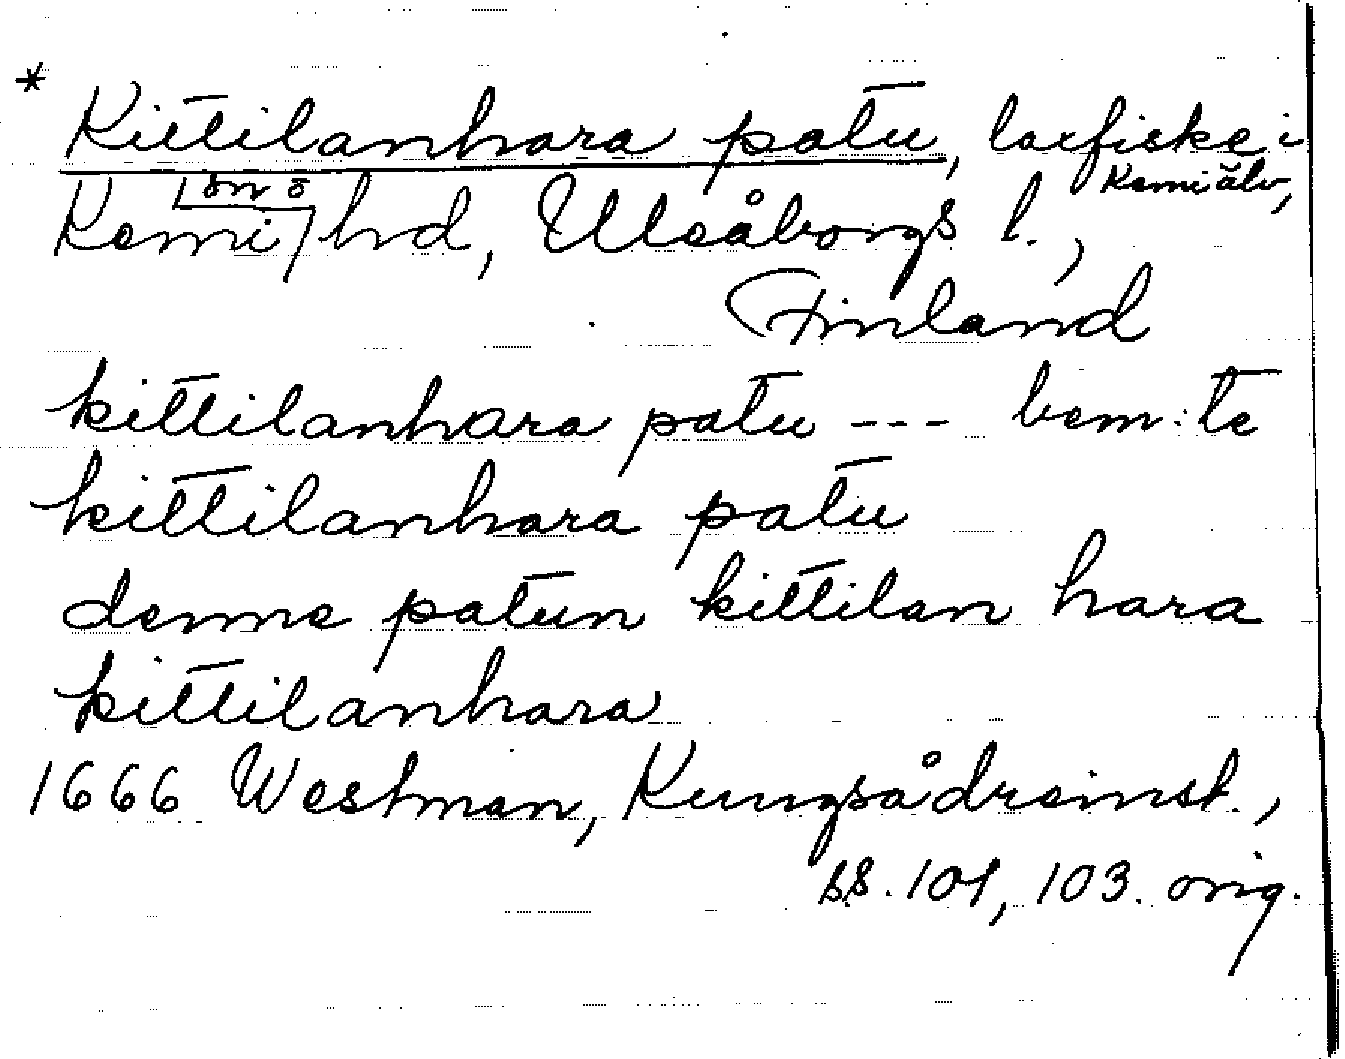 * Kittilanhara patu, laxfiske i
Kemi älv,
Kemi snö hd, Uleåborgs l.,
Finland
kittilanhara patu --- bem:te
kittilanhara patu
denne patun kittilan hara
kittilanhara
1666 Westman, Kungsådreinst.,
ss. 101, 103. orig.